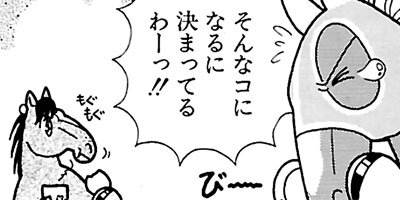 そんなコに
なるに
決まってる
わーっ!!
びーー
もぐ
もぐ